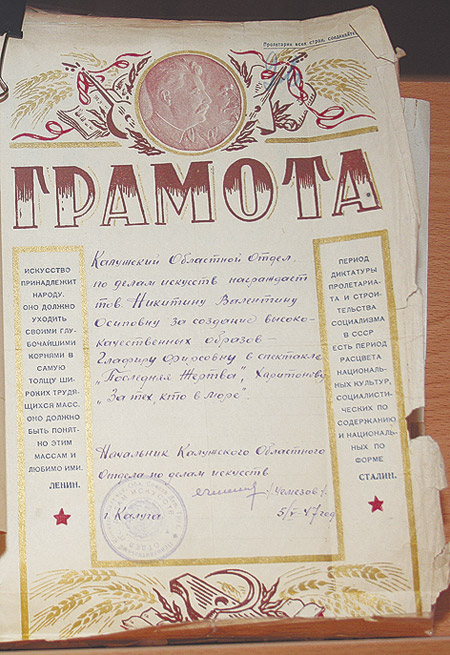 Пролетарии всех стран, соединяйтесь
ГРАМОТА
ИСКУССТВО
ПРИНАДЛЕЖИТ
НАРОДУ.
ОНО ДОЛЖНО
УХОДИТЬ
СВОИМИ ГЛУ-
БОЧАЙШИМИ
КОРНЯМИ В
САМУЮ
ТОЛЩУ ШИ-
РОКИХ ТРУДЯ-
ЩИХСЯ МАСС.
ОНО ДОЛЖНО
БЫТЬ ПОНЯТ-
НО ЭТИМ
МАССАМ И
ЛЮБИМО ИМИ.
ЛЕНИН.
Калужский Областной Отдел
по делам искусств награждает
тов. Никитину Валентину
Осиповну за создание высоко-
качественных образов
Глафиру Фирсовну в спектакле
„Последняя Жертва", Харитонову
„За тех, кто в море".
Начальник Калужского Областного
Отдела по делам искусств
/Чемезов/
г. Калуга 5/V-47 год
ПЕРИОД
ДИКТАТУРЫ
ПРОЛЕТАРИА-
ТА И СТРОИ-
ТЕЛЬСТВА
СОЦИАЛИЗМА
В СССР
ЕСТЬ ПЕРИОД
РАСЦВЕТА
НАЦИОНАЛЬ-
НЫХ КУЛЬТУР,
СОЦИАЛИСТИ-
ЧЕСКИХ ПО
СОДЕРЖАНИЮ
И НАЦИОНАЛЬ-
НЫХ ПО
ФОРМЕ
СТАЛИН.